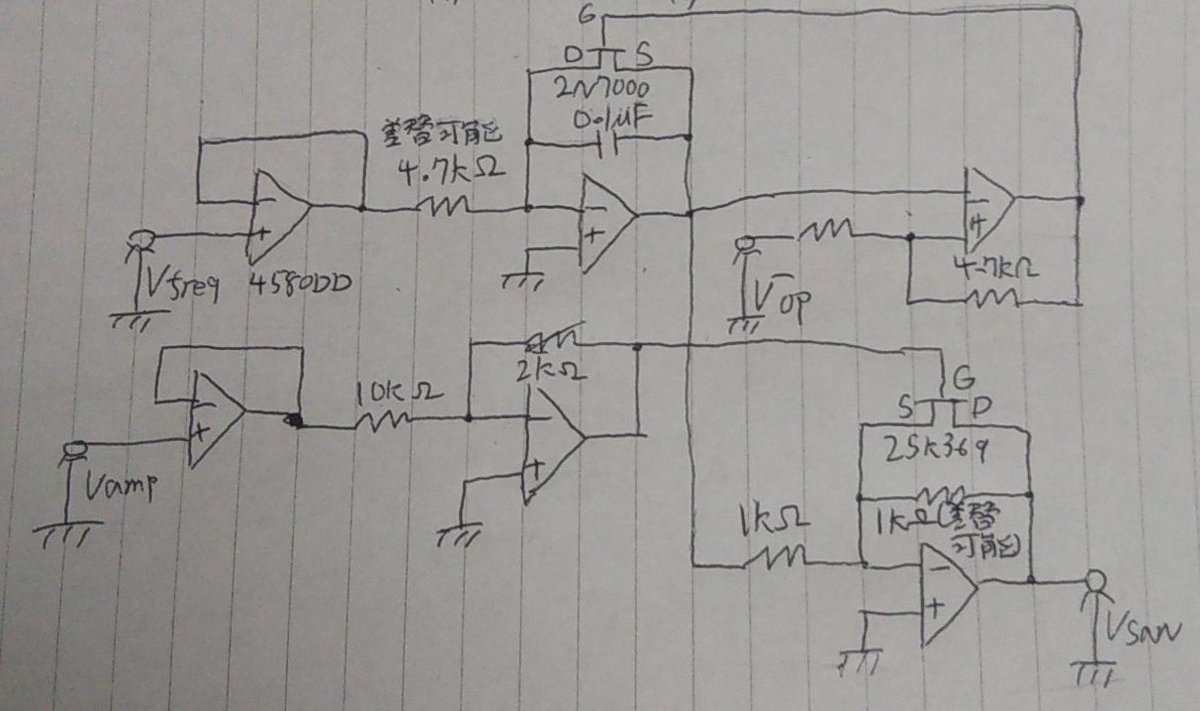 G
D S
2N7000
0.1μF
差替可能
4.7kΩ
-
+
-
+
-
+
Vfreq
4580DD
Vop
4.7kΩ
2kΩ
10kΩ
-
+
-
+
Vamp
G
S D
2SK369
1kΩ
1kΩ(差替
可能)
-
+
Vsaw